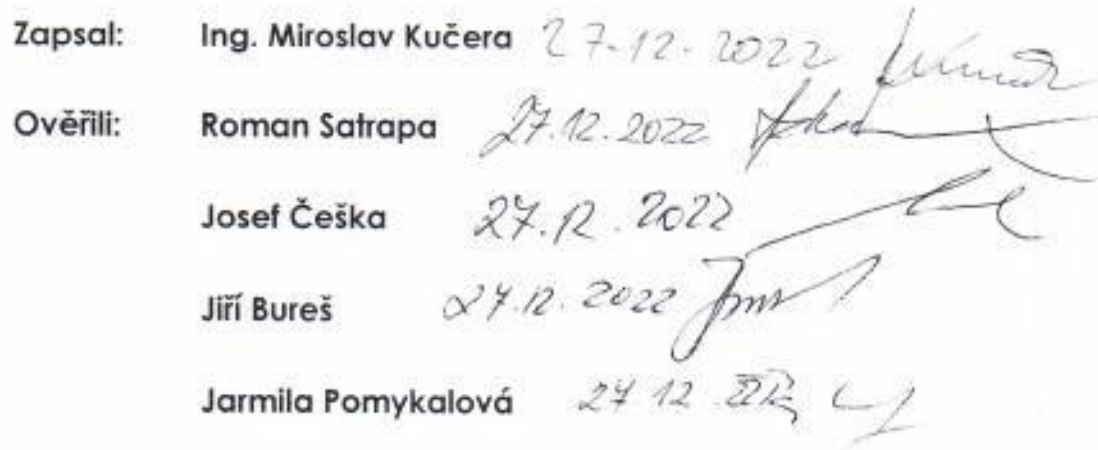 Zapsal: Ing. Miroslav Kučera 27.12.2022
Ověřili: Roman Satrapa 27.12.2022
Josef Češka 27.12.2022
Jiří Bureš 27.12.2022
Jarmila Pomykalová 27 12